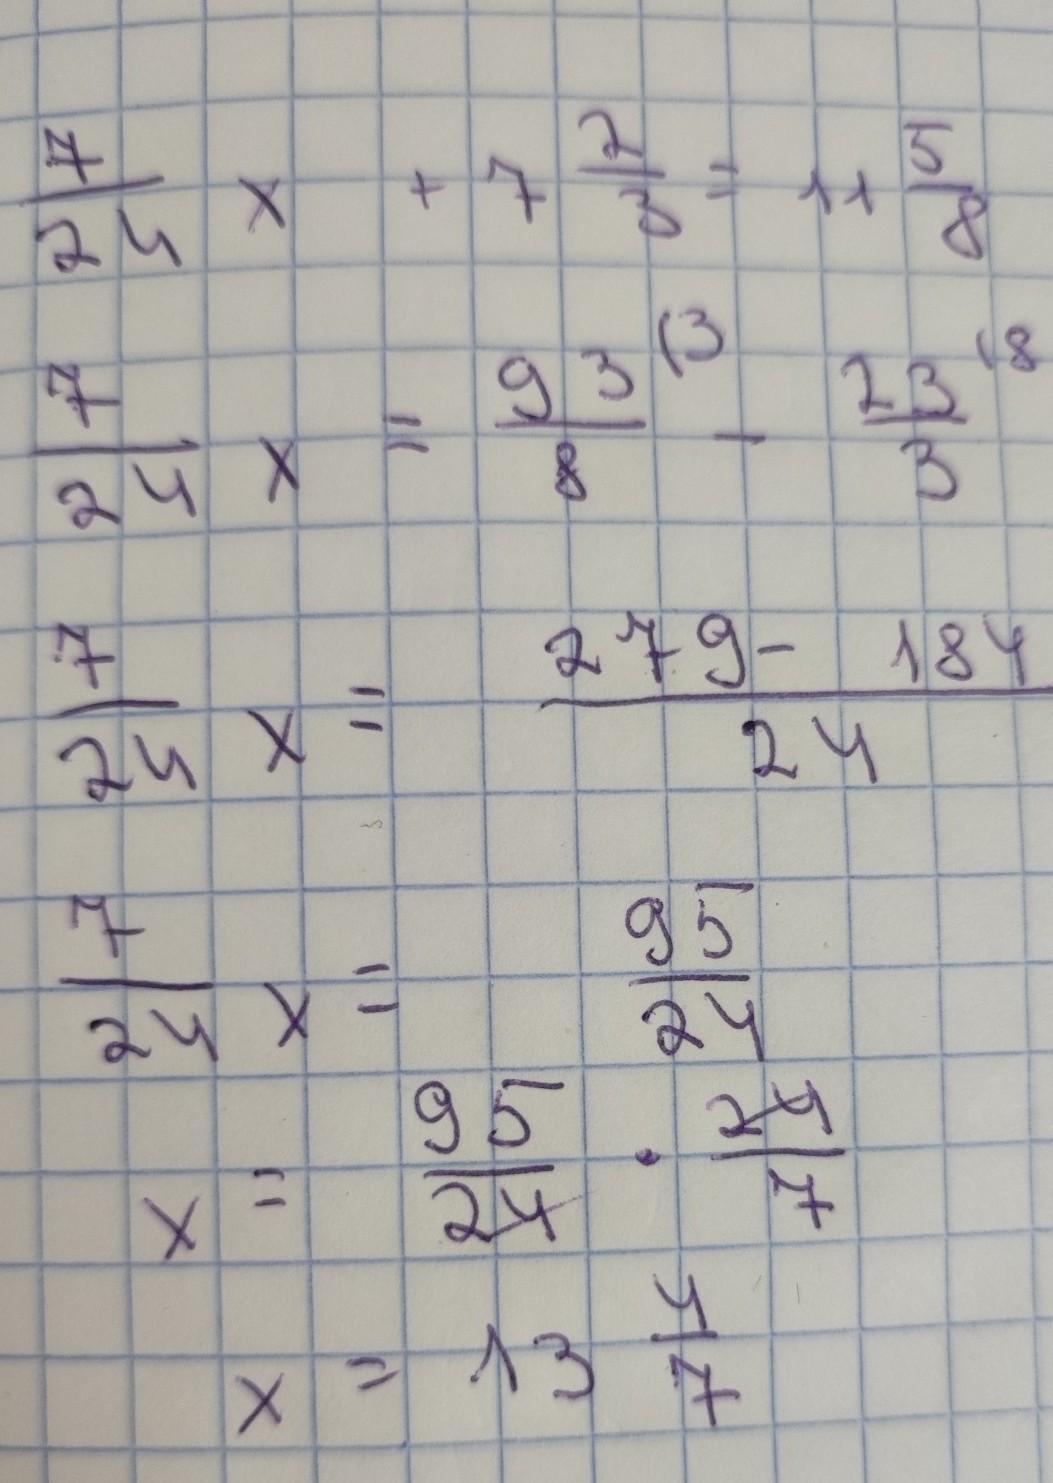 7/24 x + 7 2/3 = 11 5/8
7/24 x = 93/8 (3 - 23/3 (8
7/24 x = 279 - 184/24
7/24 x = 95/24
x = 95/24 · 24/7
x = 13 4/7